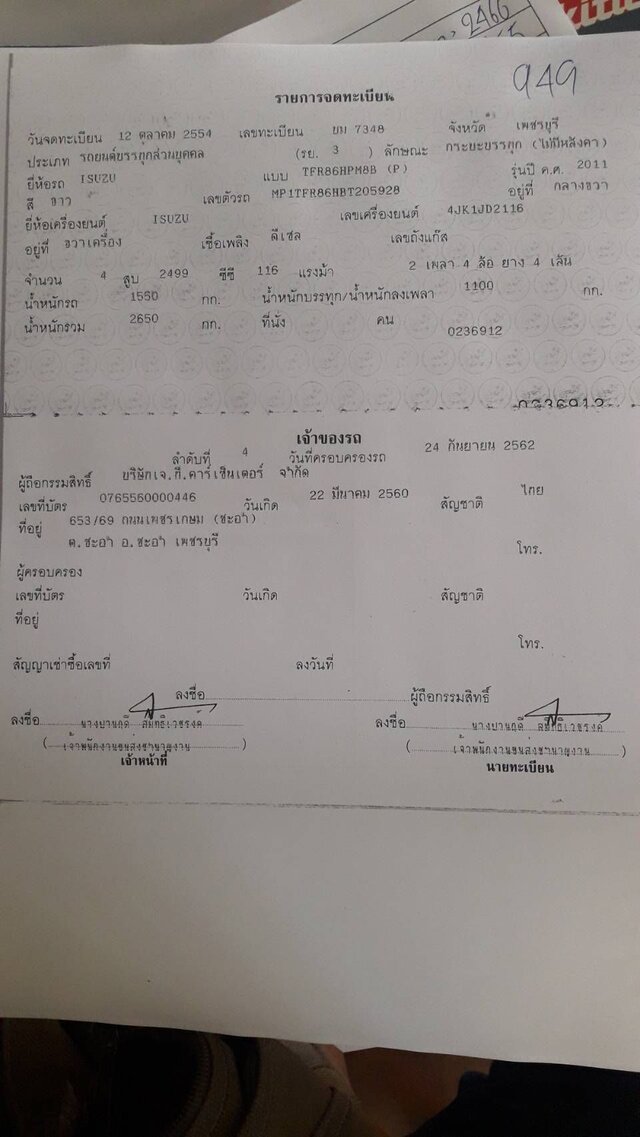 2466
949
รายการจดทะเบียน
วันจดทะเบียน 12 ตุลาคม 2554 เลขทะเบียน บม 7348 จังหวัด เพชรบุรี
ประเภท รถยนต์บรรทุกส่วนบุคคล (รย. 3 ) ลักษณะ กระบะบรรทุก (ไม่มีหลังคา)
ยี่ห้อรถ ISUZU แบบ TFR86HPM8B (P) รุ่นปี ค.ศ. 2011
สี ขาว เลขตัวรถ MP1TFR86HBT205928 อยู่ที่ กลางขวา
ยี่ห้อเครื่องยนต์ ISUZU เลขเครื่องยนต์ 4JK1JD2116
อยู่ที่ ขวาเครื่อง เชื้อเพลิง ดีเซล เลขถังแก๊ส
จำนวน 4 สูบ 2499 ซีซี 116 แรงม้า 2 เพลา 4 ล้อ ยาง 4 เส้น
น้ำหนักรถ 1550 กก. น้ำหนักบรรทุก/น้ำหนักลงเพลา 1100 กก.
น้ำหนักรวม 2650 กก. ที่นั่ง คน
0236912
0236912
เจ้าของรถ
ลำดับที่ 4 วันที่ครอบครองรถ 24 กันยายน 2562
ผู้ถือกรรมสิทธิ์ บริษัทเจ.ที.คาร์เซ็นเตอร์ จำกัด
เลขที่บัตร 0765560000446 วันเกิด 22 มีนาคม 2560 สัญชาติ ไทย
ที่อยู่ 653/69 ถนนเพชรเกษม (ชะอำ)
ต.ชะอำ อ.ชะอำ เพชรบุรี
โทร.
ผู้ครอบครอง
เลขที่บัตร วันเกิด สัญชาติ
ที่อยู่
โทร.
สัญญาเช่าซื้อเลขที่ ลงวันที่
ลงชื่อ ผู้ถือกรรมสิทธิ์
ลงชื่อ ลงชื่อ
(เจ้าพนักงานขนส่งชำนาญงาน) (เจ้าพนักงานขนส่งชำนาญงาน)
เจ้าหน้าที่ นายทะเบียน